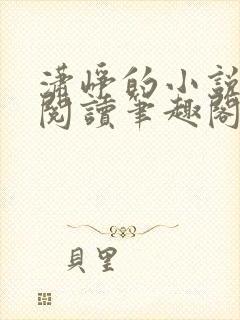 瀟崢的小說
閱讀筆趣閣
貝里